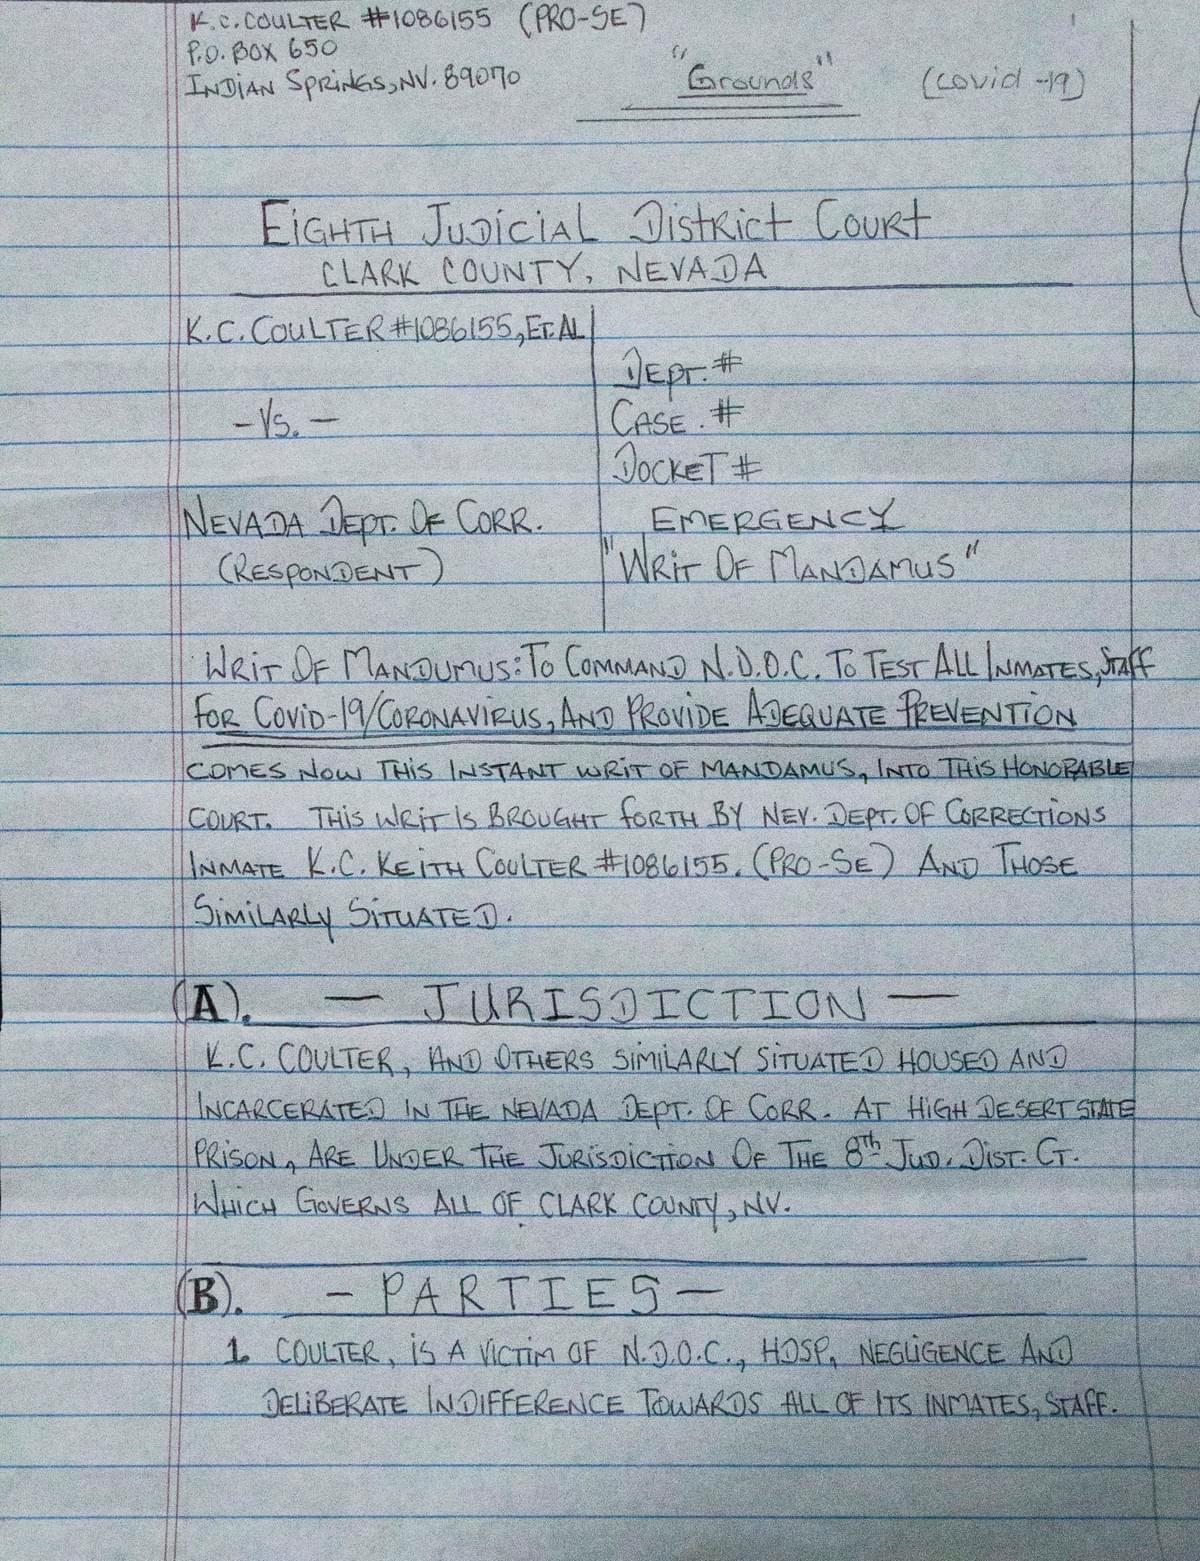 K.C. COULTER #1086155 (PRO-SE)
P.O. BOX 650
INDIAN SPRINGS, NV. 89070
"Grounds" (Covid-19)
EIGHTH JUDICIAL DISTRICT COURT
CLARK COUNTY, NEVADA
K.C. COULTER #1086155, ET. AL
DEPT. #
-VS.-
CASE. #
DOCKET #
NEVADA DEPT. OF CORR.
EMERGENCY
(RESPONDENT)
"WRIT OF MANDAMUS"
WRIT OF MANDUMUS: TO COMMAND N.D.O.C. TO TEST ALL INMATES, STAFF
FOR COVID-19/CORONAVIRUS, AND PROVIDE ADEQUATE PREVENTION
COMES NOW THIS INSTANT WRIT OF MANDAMUS, INTO THIS HONORABLE
COURT. THIS WRIT IS BROUGHT FORTH BY NEV. DEPT. OF CORRECTIONS
INMATE K.C. KEITH COULTER #1086155. (PRO-SE) AND THOSE
SIMILARLY SITUATED.
(A). — JURISDICTION —
K.C. COULTER, AND OTHERS SIMILARLY SITUATED HOUSED AND
INCARCERATED IN THE NEVADA DEPT. OF CORR. AT HIGH DESERT STATE
PRISON, ARE UNDER THE JURISDICTION OF THE 8TH JUD. DIST. CT.
WHICH GOVERNS ALL OF CLARK COUNTY, NV.
(B). - PARTIES -
1. COULTER, IS A VICTIM OF N.D.O.C., HDSP, NEGLIGENCE AND
DELIBERATE INDIFFERENCE TOWARDS ALL OF ITS INMATES, STAFF.